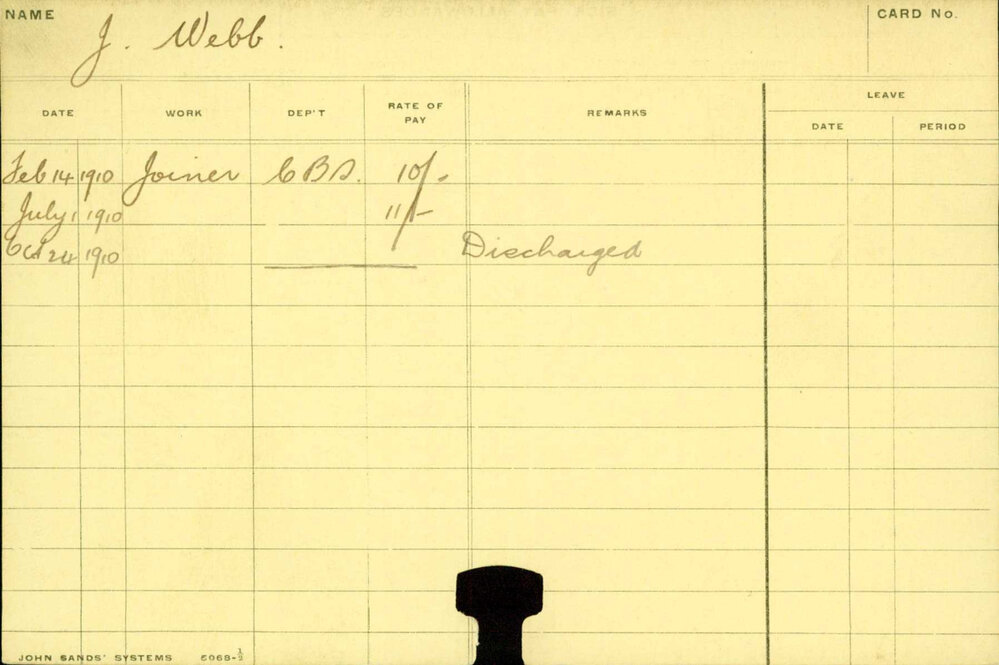 NAME
J. Webb.
CARD No.
DATE WORK DEP'T RATE OF PAY REMARKS LEAVE
DATE PERIOD
Feb 14 1910 Joiner C B S. 10/-
July 1 1910 11/-
Oct 24 1910 Discharged
JOHN SANDS' SYSTEMS 5068-½